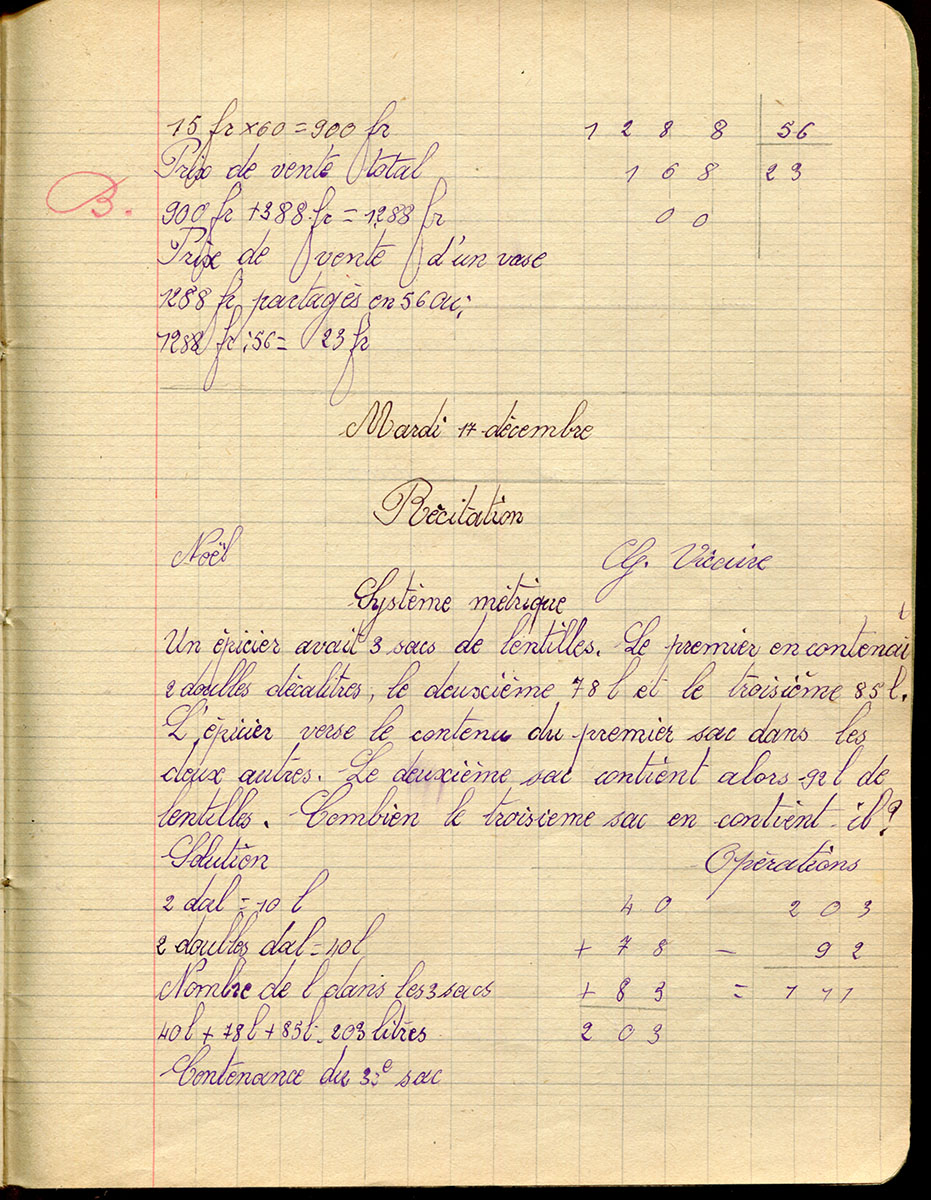 15 fr × 60 = 900 fr
1 2 8 8 | 56
Prix de vente total
1 6 8 | 23
B.
900 fr + 388 fr = 1288 fr
0 0
Prix de vente d'un vase
1288 fr partagés en 56
1288 fr : 56 = 23 fr
Mardi 17 décembre
Récitation
Noël G. Vicaire
Système métrique
Un épicier avait 3 sacs de lentilles. Le premier en contenait
2 doubles décalitres, le deuxième 78 l et le troisième 85 l.
L'épicier verse le contenu du premier sac dans les
deux autres. Le deuxième sac contient alors 92 l de
lentilles. Combien le troisième sac en contient-il?
Solution Opérations
2 dal = 10 l 4 0 2 0 3
2 doubles dal = 40l + 7 8 - 9 2
Nombre de l dans les 3 sacs + 8 5 = 1 1 1
40l + 78l + 85l = 203 litres 2 0 3
Contenance du 3e sac